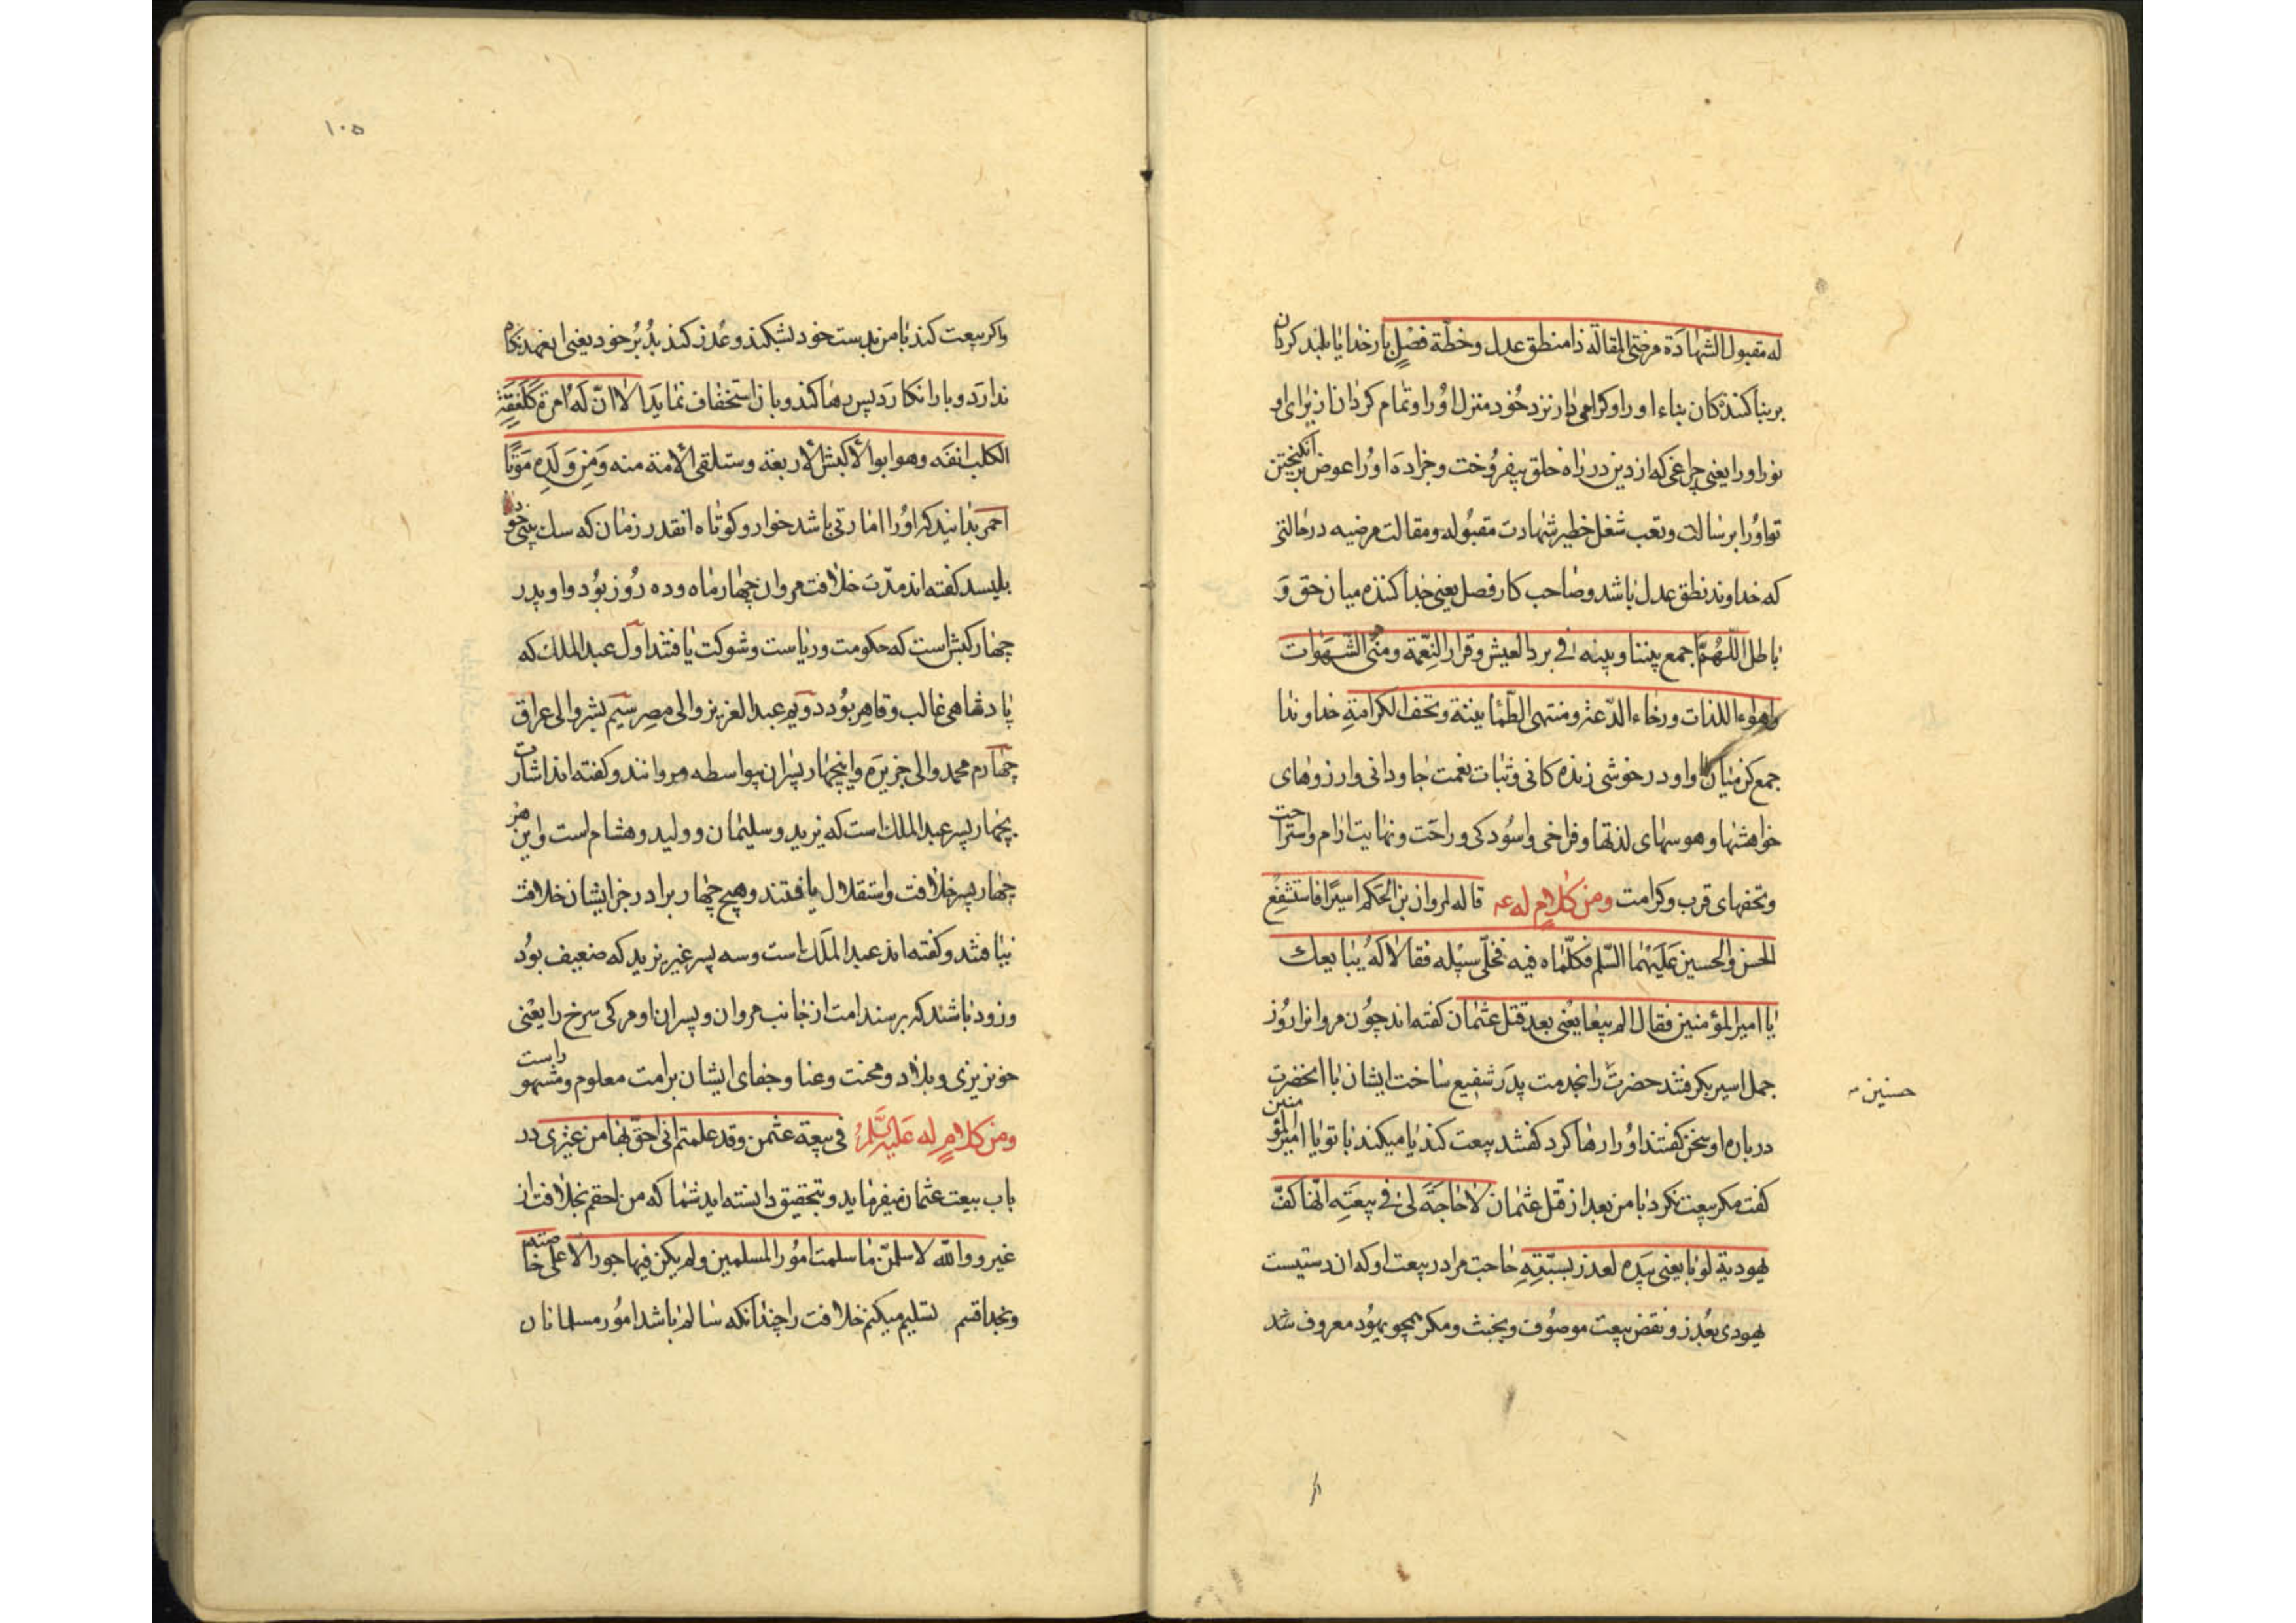 له مقبول الشهادة مرضی المقالة ذا منطق عدل وخطة فصل بار خدایا بلند کردان
بر بنا کننده کان بناء او را و کرامی دار نزد خود منزل او را و تمام کردان از برای او
نور او را یعنی چراغی که از دین در راه خلق بیفروخت و جزا ده او را عوض برانکیختن
تو او را برسالت و تعب شغل خطیر شهادت مقبوله و مقالت مرضیه در حالتی
که خداوند نطق عدل باشد و صاحب کار فصل یعنی جدا کننده میان حق و
باطل اللهم اجمع بیننا وبینه فی برد العیش وقرار النعمة ومنی الشهوات
واهواء اللذات ورخاء الدعة ومنتهی الطمانینة وتحف الکرامة خداوندا
جمع کن میان ما و او در خوشی زنده کانی و ثبات نعمت جاودانی و ارزوهای
خواهشها و هوسهای لذتها و فراخی و اسودکی و راحت و نهایت ارام و استراحت
و تحفهای قرب و کرامت ومن کلام له عه قاله لمروان بن الحکم اسیرا فاستشفع
الحسن والحسین علیهما السلم فکلماه فیه فخلی سبیله فقالا له یبایعک
یا امیر المؤمنین فقال الم یبایعنی بعد قتل عثمان کفته اند چون مروانرا روز
جمل اسیر بکرفتند حضرت را بخدمت پدر شفیع ساخت ایشان با انحضرت
حسنین
درباره او سخن کفتند او را رها کرد کفتند بیعت کند یا میکند با تو یا امیر المؤمنین
کفت مکر بیعت نکرد با من بعد از قتل عثمان لا حاجة لی فی بیعته انها کف
یهودیة لو بایعنی بیده لغدر بسبته حاجت مرا در بیعت او که ان دستیست
یهودی بغدر و نقض بیعت موصوف و بخبث و مکر همچو یهود معروف شد
۱۰۵
واکر بیعت کند با من بدست خود بشکند و غدر کند بدبر خود یعنی انعهد نکاه
ندارد و بار انکارد پس رها کند و بان استخفاف نماید اما ان له امرة کلعقة
الکلب انفه وهو ابو الاکبش الاربعة وستلقی الامة منه ومن ولده موتا
احمر بدانید که او را امارتی باشد خوار و کوتاه انقدر زمان که سک بینی خود
بلیسد کفته اند مدت خلافت مروان چهار ماه و ده روز بود و او پدر
چهار کبش است که حکومت و ریاست و شوکت یافتند اول عبد الملک که
پادشاهی غالب و قاهر بود دویم عبد العزیز والی مصر سیم بشر والی عراق
چهارم محمد والی جزیره و اینچهار پسران بیواسطه مروانند و کفته اند اشارت
بچهار پسر عبد الملک است که یزید و سلیمان و ولید و هشام است و این هر
چهار پسر خلافت و استقلال یافتند و هیچ چهار برادر جز ایشان خلافت
نیافتند و کفته اند عبد الملک است و سه پسر غیر یزید که ضعیف بود
و زود باشند که برسند امت از جانب مروان و پسران او مرکی سرخ را یعنی
خونریزی و بلا و محنت و عنا و جفای ایشان بر امت معلوم و مشهور است
ومن کلام له علیه السلم فی بیعة عثمن وقد علمتم انی احق بها من غیری در
باب بیعت عثمان میفرماید و بتحقیق دانسته اید شما که من احقم بخلافت از
غیر ووالله لاسلمن ما سلمت امور المسلمین ولم یکن فیها جور الا علی خاصة
وبخدا قسم تسلیم میکنم خلافت را چندانکه سالم باشد امور مسلمانان